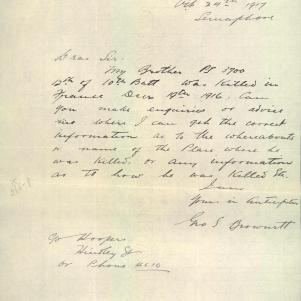 Oct 24th 1917
Semaphore
Dear Sir
My Brother Pt 5700
12th of 10th Batt was Killed in
France Decr 19th 1916. Can
you make enquiries or advise
me where I can get the correct
information as to the whereabouts
or name of the Place where he
was Killed. or any information
as to how he was Killed Etc
I am
Yours in anticipation
Geo S
c/o Hoopers
Hindley St
or Phone